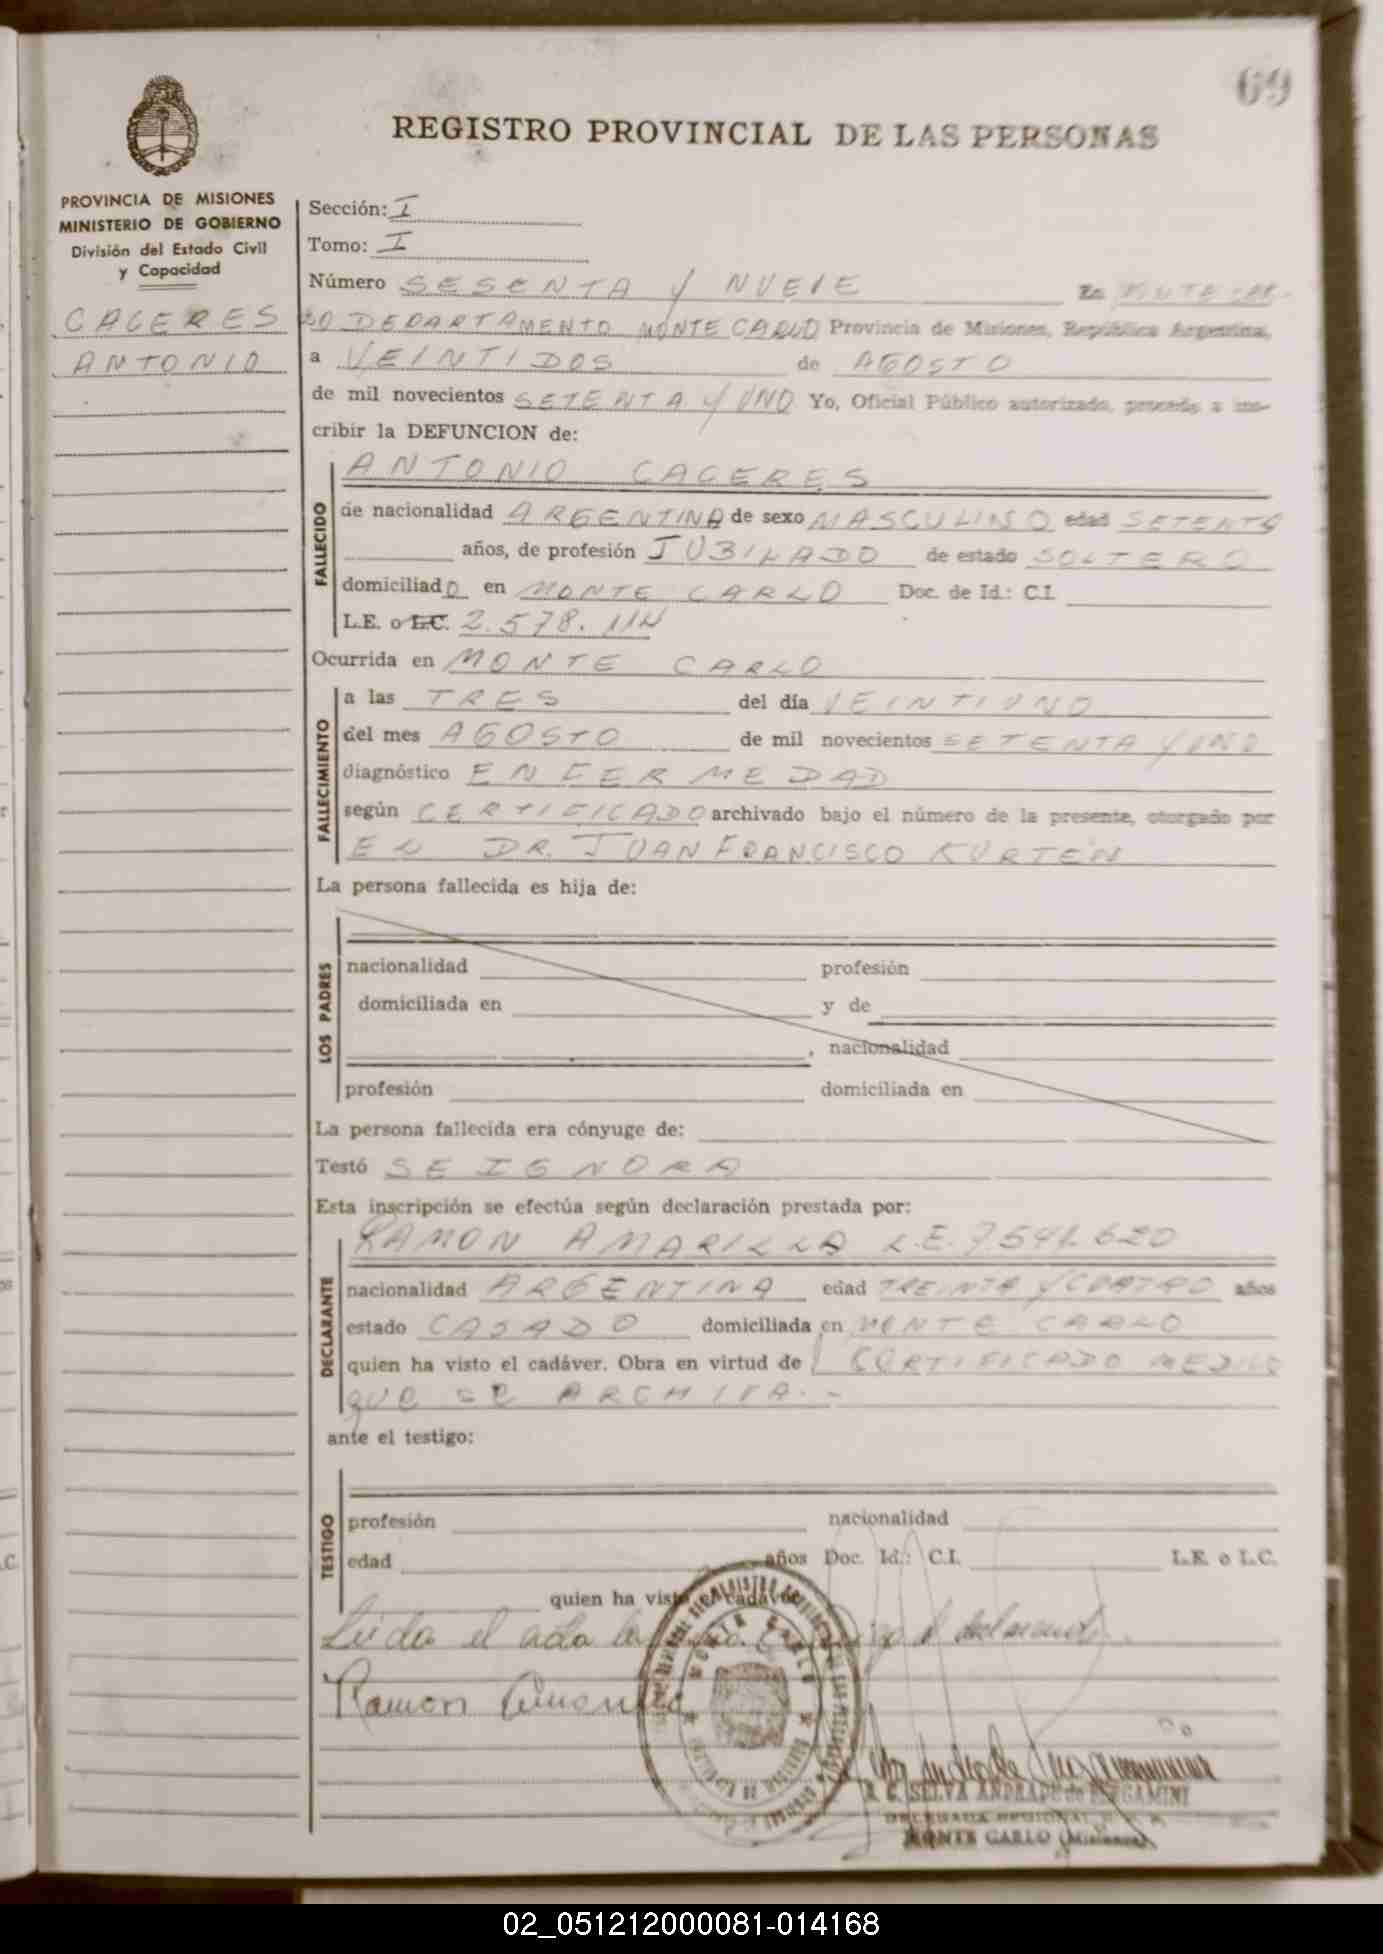 69
REGISTRO PROVINCIAL DE LAS PERSONAS
PROVINCIA DE MISIONES
MINISTERIO DE GOBIERNO
División del Estado Civil
y Capacidad
CACERES
ANTONIO
Sección: I
Tomo: I
Número SESENTA Y NUEVE En MONTE CAR-
LO DEPARTAMENTO MONTE CARLO Provincia de Misiones, República Argentina,
a VEINTIDOS de AGOSTO
de mil novecientos SETENTA Y UNO Yo, Oficial Público autorizado, procedo a ins-
cribir la DEFUNCION de:
FALLECIDO
ANTONIO CACERES
de nacionalidad ARGENTINA de sexo MASCULINO edad SETENTA
años, de profesión JUBILADO de estado SOLTERO
domiciliado en MONTE CARLO Doc. de Id.: C.I.
L.E. o L.C. 2.578.114
Ocurrida en MONTE CARLO
FALLECIMIENTO
a las TRES del día VEINTIUNO
del mes AGOSTO de mil novecientos SETENTA Y UNO
diagnóstico ENFERMEDAD
según CERTIFICADO archivado bajo el número de la presente, otorgado por
EL DR. JUAN FRANCISCO KURTEN
La persona fallecida es hija de:
LOS PADRES
nacionalidad profesión
domiciliada en y de
, nacionalidad
profesión domiciliada en
La persona fallecida era cónyuge de:
Testó SE IGNORA
Esta inscripción se efectúa según declaración prestada por:
DECLARANTE
RAMON AMARILLA L.E. 7.541.620
nacionalidad ARGENTINA edad TREINTA Y CUATRO años
estado CASADO domiciliada en MONTE CARLO
quien ha visto el cadáver. Obra en virtud de CERTIFICADO MEDICO
QUE SE ARCHIVA.-
ante el testigo:
TESTIGO
profesión nacionalidad
edad años Doc. Id.: C.I. L.E. o L.C.
quien ha visto el cadáver
Leida el acta
Ramon
MONTE CARLO
R. C. SELVA ANDRADE de BERGAMINI
DELEGADA REGIONAL
MONTE CARLO (Misiones)
02_051212000081-014168